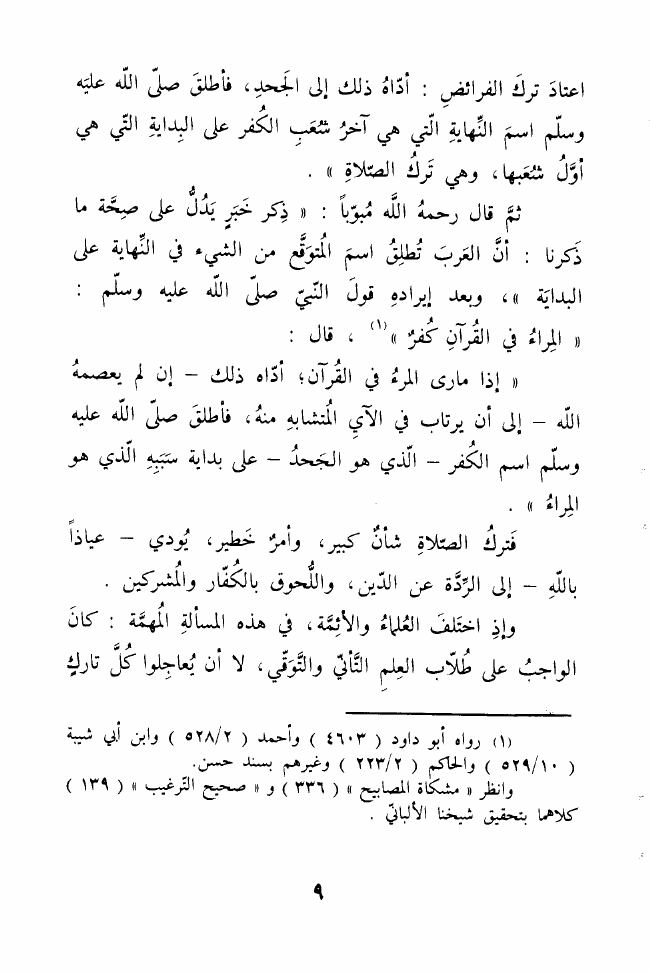 اعتادَ تركَ الفرائضِ : أدّاهُ ذلك إلى الجَحدِ، فأطلقَ صلّى الله عليَه
وسلّم اسمَ النِّهايةِ الّتي هي آخرُ شُعَبِ الكُفر على البِدايةِ التّي هي
أوَّلُ شُعَبها، وهي تَركُ الصّلاةِ » .
ثمَّ قال رحمهُ اللَّه مُبوّباً : « ذِكر خَبَرٍ يَدُلُّ على صِحَّة ما
ذَكرنا : أنَّ العَربَ تُطلِقُ اسمَ المُتوَقَّع من الشيء في النِّهاية على
البدايَة »، وبعد إيرادِهِ قولَ النّبيّ صلّى الله عليه وسلّم :
« المِراءُ في القُرآنِ كُفرٌ »(١) ، قال :
« إذا مارى المرءُ في القُرآن؛ أدّاه ذلك – إن لم يعصمهُ
الله – إلى أن يرتاب في الآيِ المُتشابهِ منهُ، فأطلقَ صلّى الله عليه
وسلّم اسم الكُفر – الّذي هو الجَحدُ – على بداية سَبَبِهِ الّذي هو
المِراءُ » .
فَتركُ الصّلاةِ شأنٌ كبير، وأمرٌ خَطير، يُودي – عياذاً
باللّهِ – إلى الرِّدَّة عن الدّين، واللُّحوق بالكُفّار والمُشركين .
وإذِ اختَلفَ العُلماءُ والأئِمَّة، في هذه المسألةِ المُهمَّة : كانَ
الواجبُ على طُلّاب العِلمِ التَّأنّي والتَّوَقّي، لا أن يُعاجلوا كُلَّ تاركٍ
(١) رواه أبو داود ( ٤٦٠٣ ) وأحمد ( ٥٢٨/٢ ) وابن أبي شيبة
( ٥٢٩/١٠ ) والحاكم ( ٢٢٣/٢ ) وغيرهم بسند حسن.
وانظر « مشكاة المصابيح » ( ٣٣٦ ) و « صحيح التّرغيب » ( ١٣٩ )
كلاهما بتحقيق شيخنا الألبانيّ .
٩